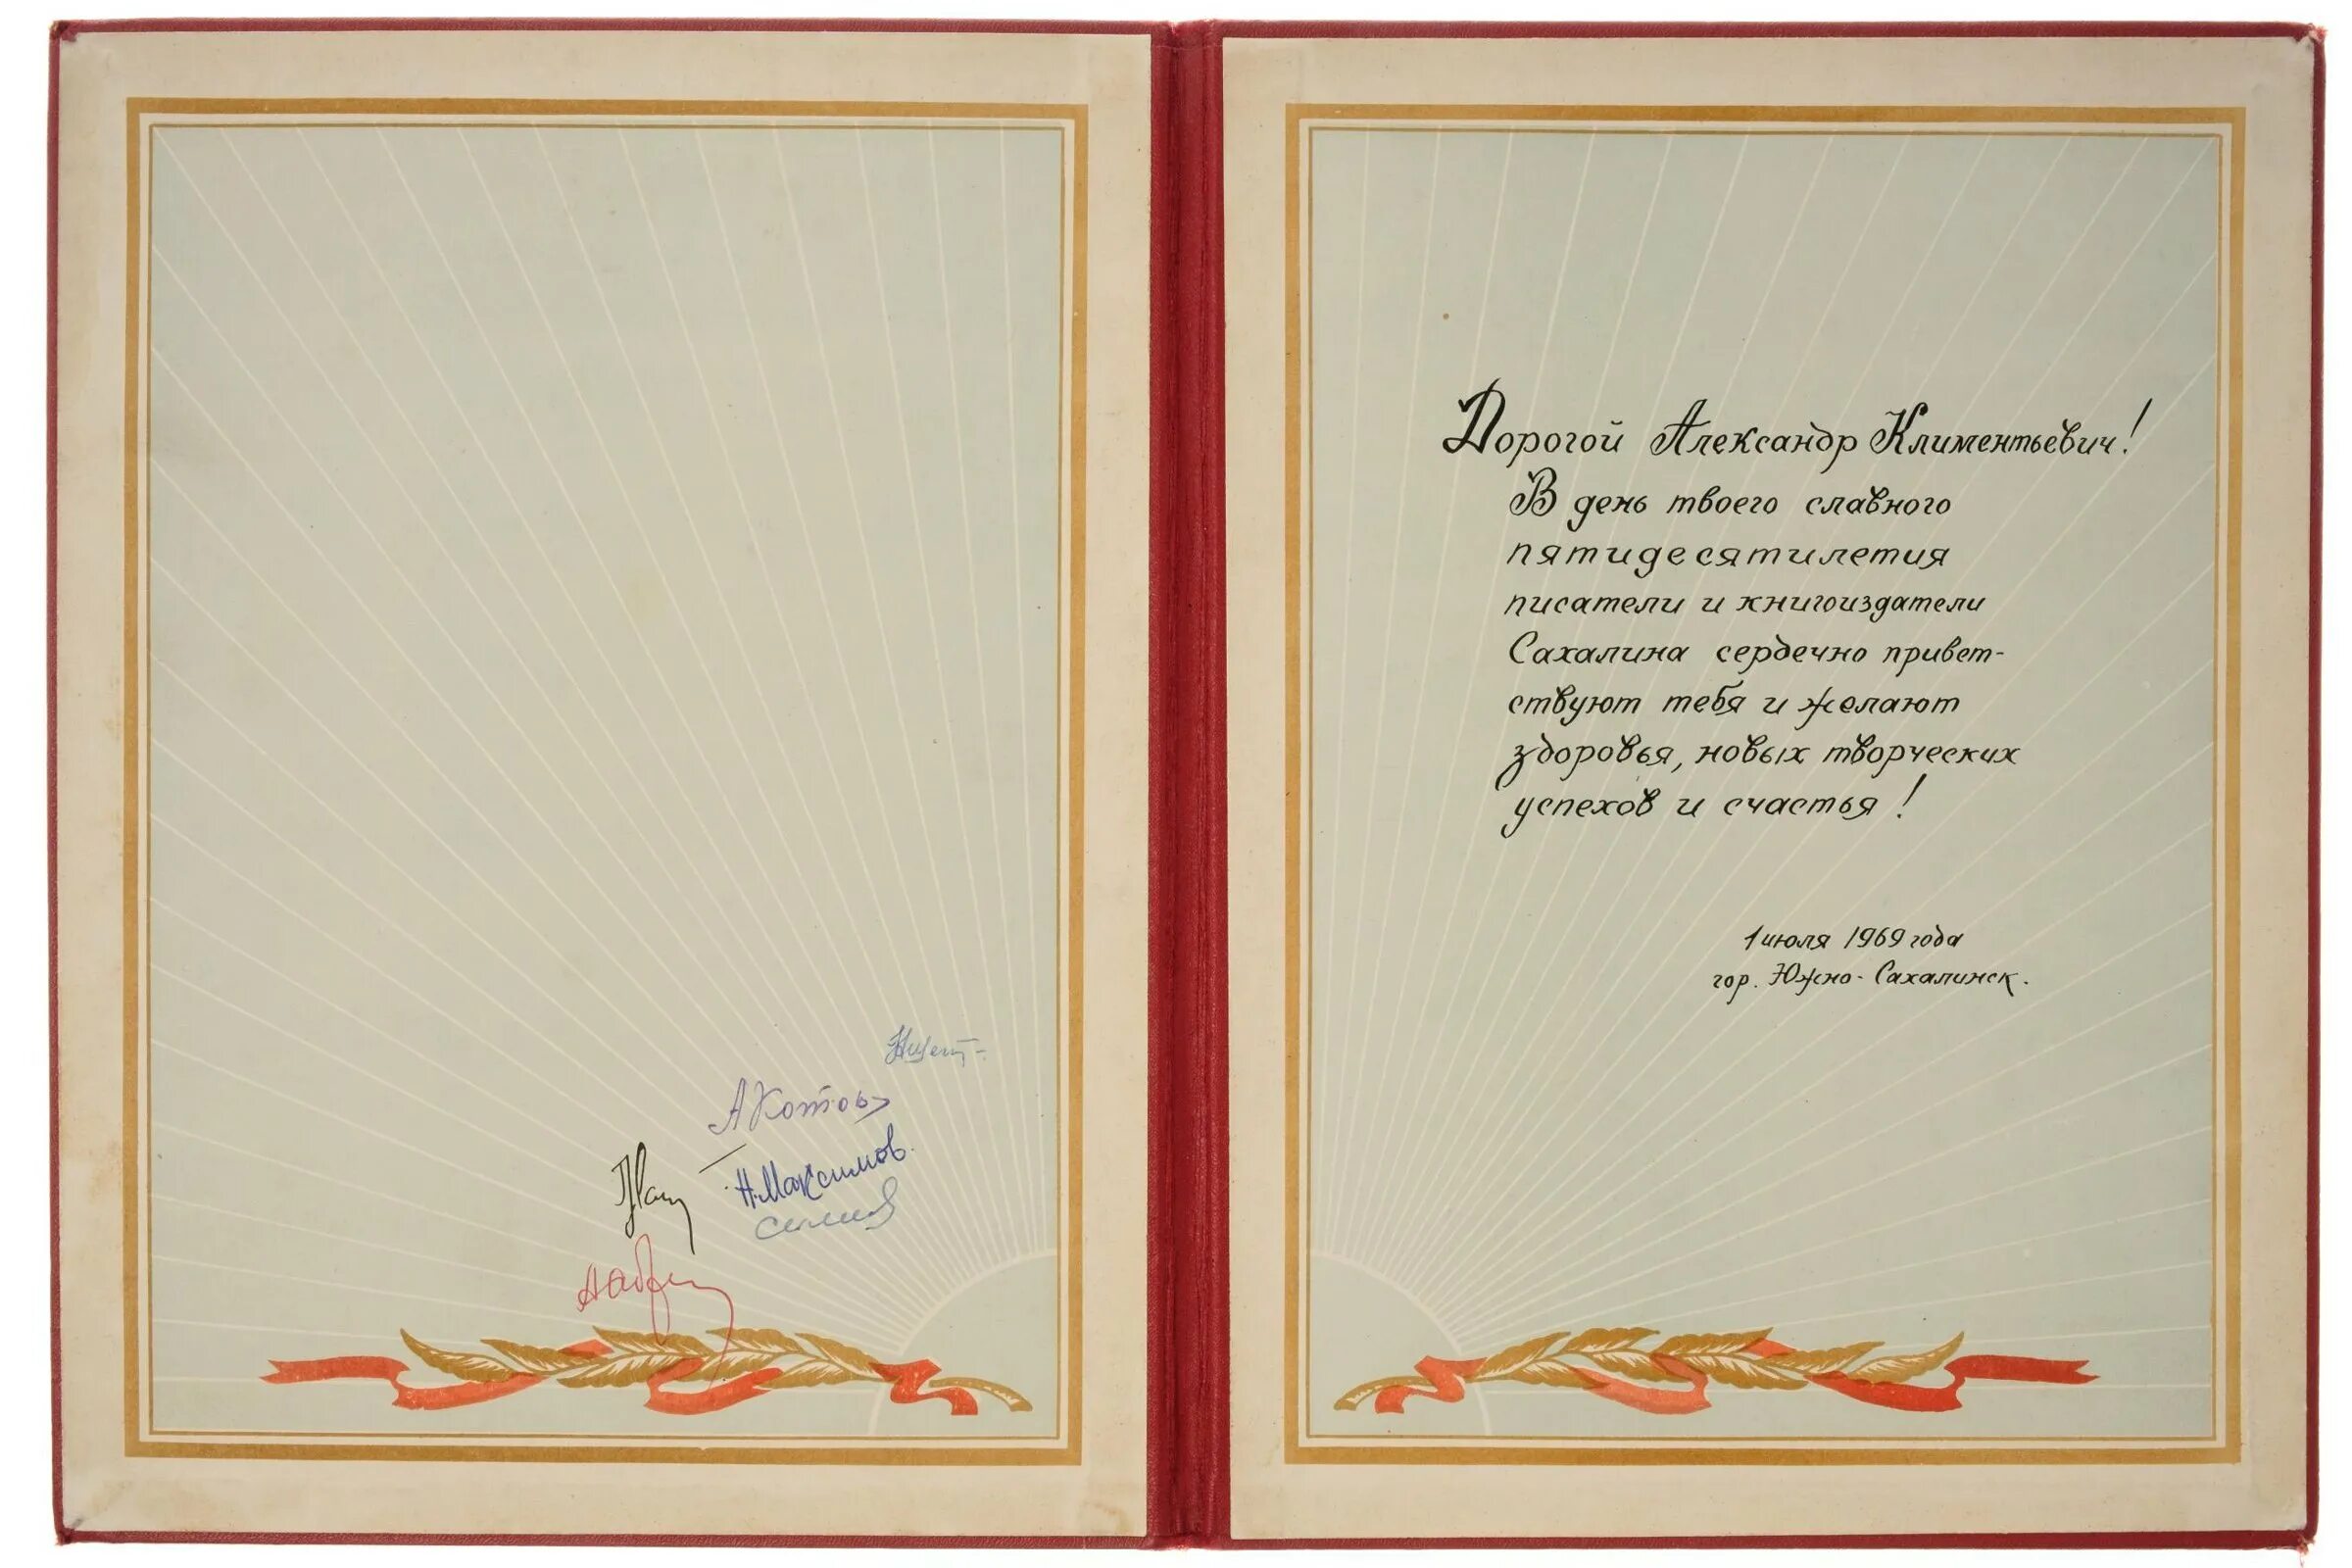 А Котов
Н. Максимов.
Дорогой Александр Климентьевич!
В день твоего славного
пятидесятилетия
писатели и книгоиздатели
Сахалина сердечно привет-
ствуют тебя и желают
здоровья, новых творческих
успехов и счастья!
1 июля 1969 года
гор. Южно-Сахалинск.